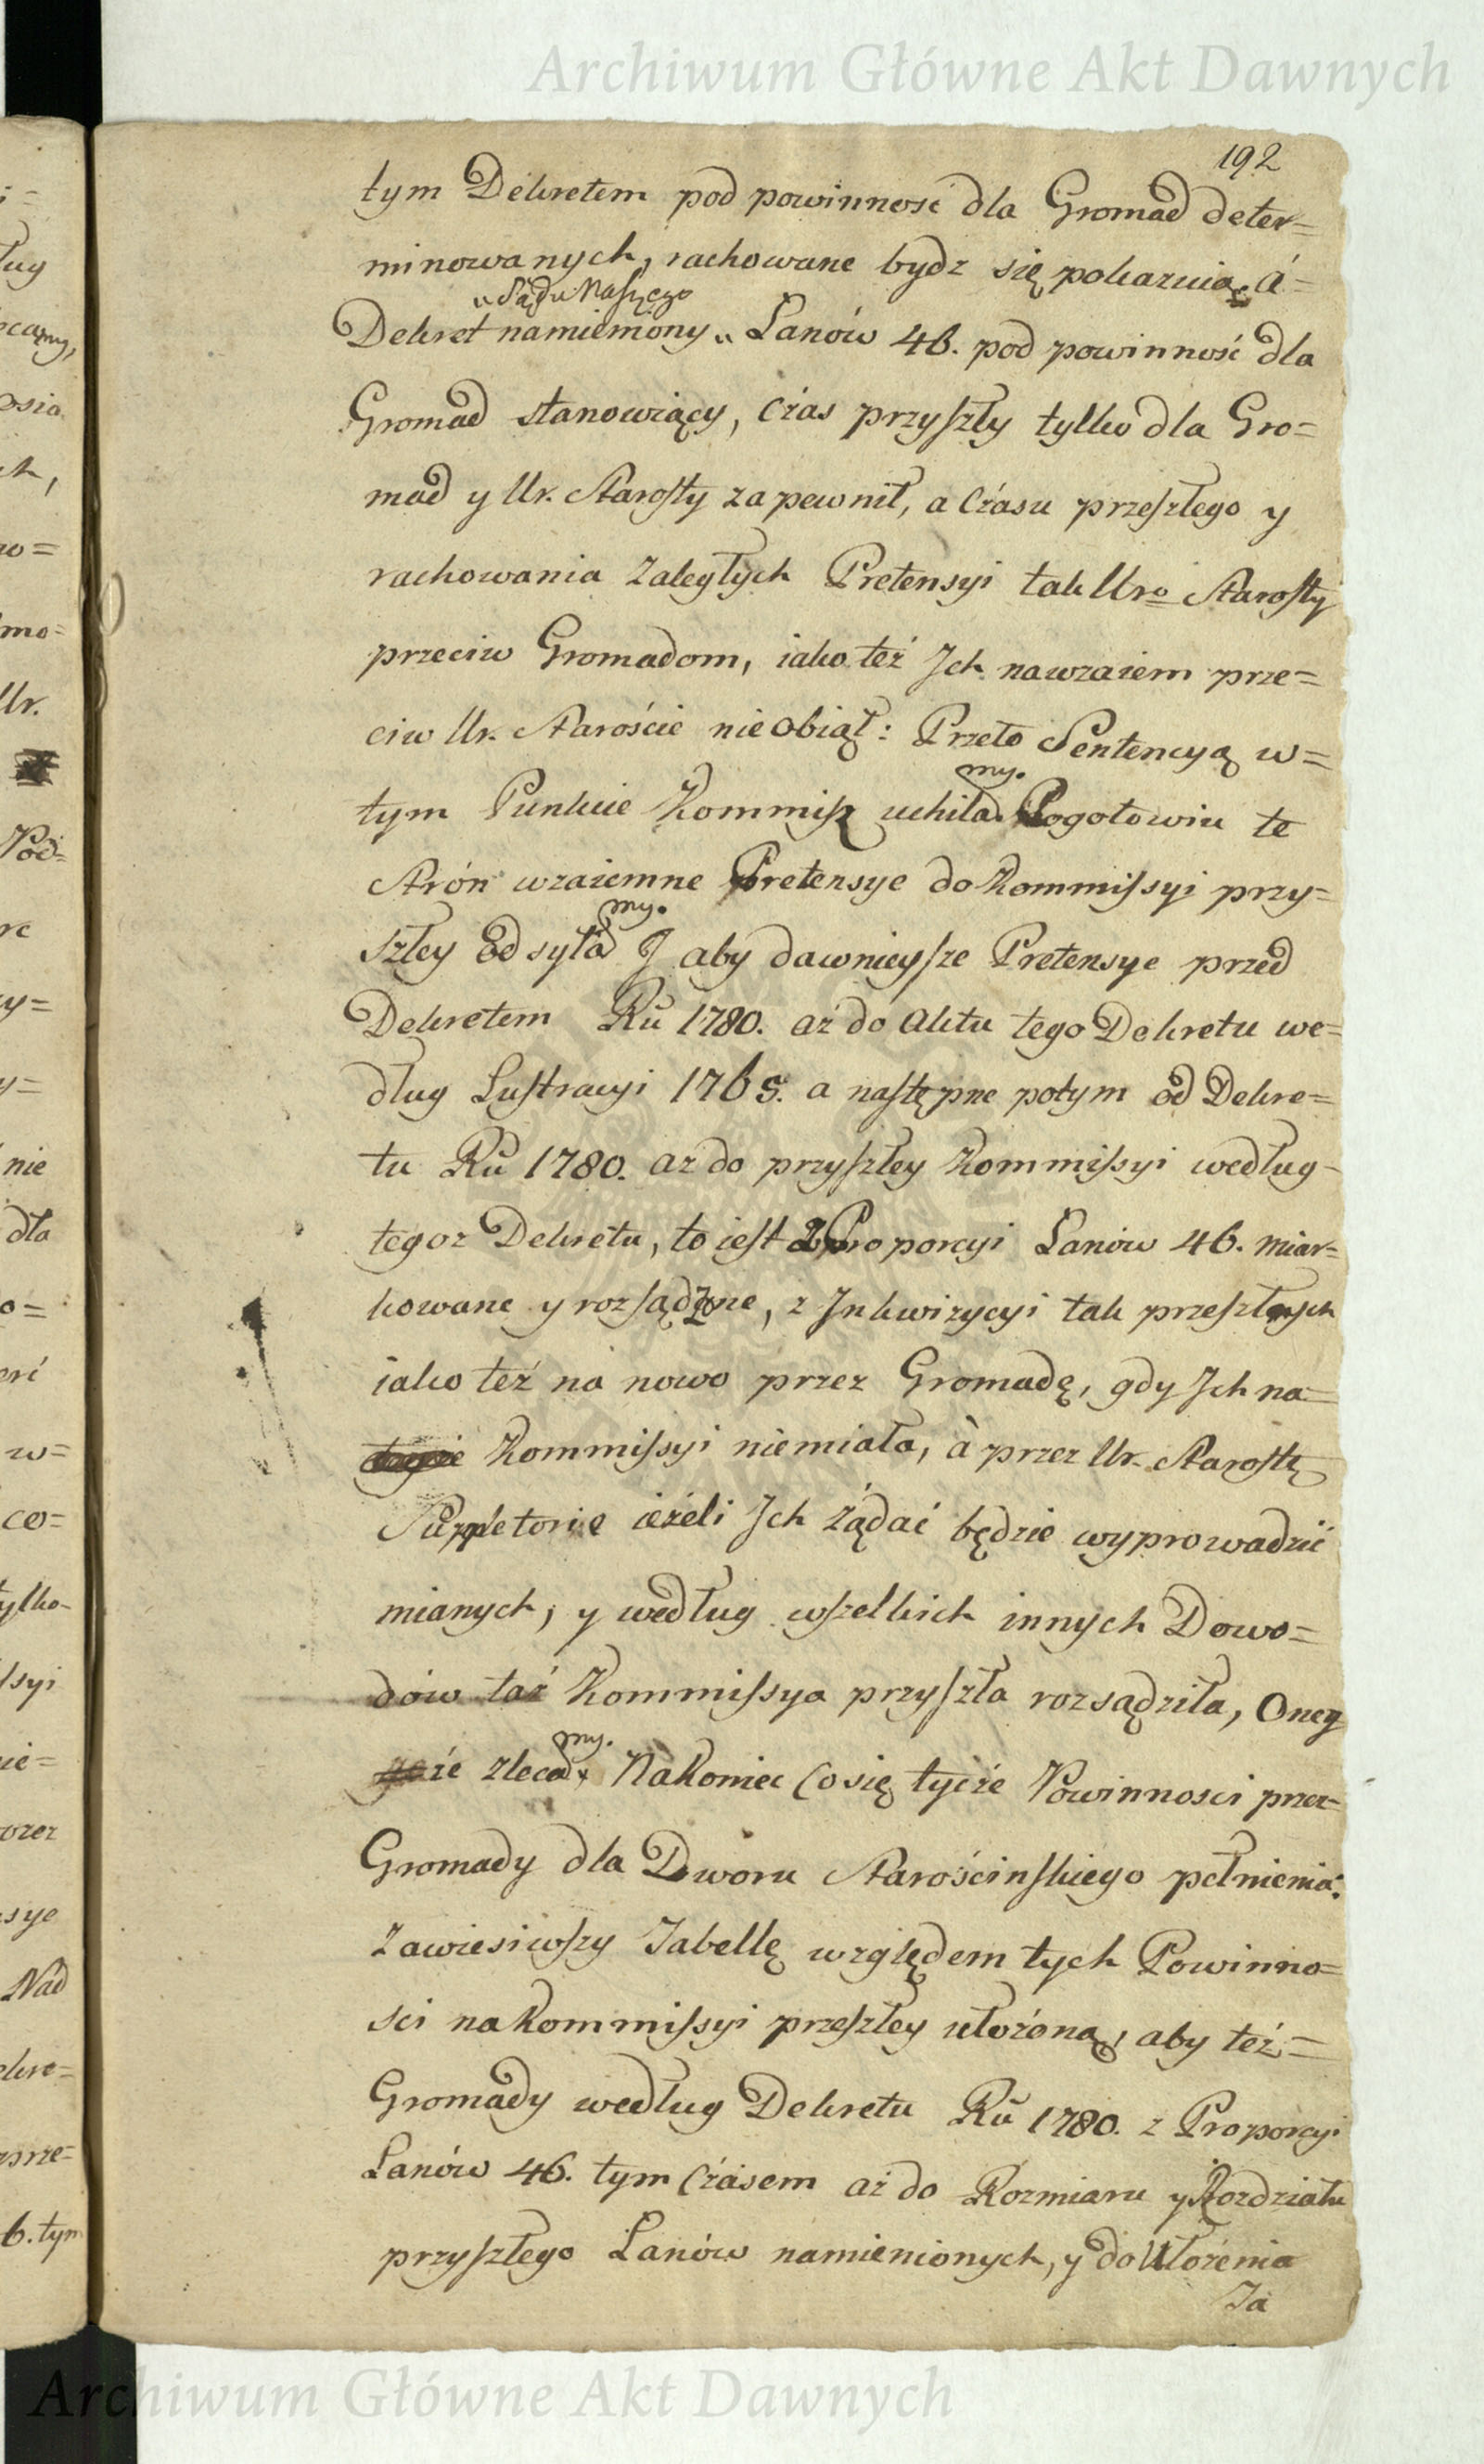 Archiwum Główne Akt Dawnych
192
tym Dekretem pod powinnosc dla Gromad deter=
minowanych, rachowane bydz się pokazuią, á=
„ Sądu Naszęgo
Dekret namiemiony „ Łanów 46. pod powinność dla
Gromad stanowiący, Czas przyszły tylko dla Gro=
mad y Ur. Starosty zapewnił, a Czasu przeszłego y
rachowania Zaległych Pretensyi tak Uro Starosty
przeciw Gromadom, iako też Jch nawzaiem prze=
ciw Ur. Staroście nie obiął: Przeto Sentencyą w=
my.
tym Punkcie Kommisz uchila. Pogotowiu te
Strón wzaiemne Pretensye do Kommissyi przy=
my.
szłey Odsyła J aby dawnieysze Pretensye przed
Dekretem Ru 1780. aż do Aktu tego Dekretu we=
dług Lustracyi 1765. a następne potym od Dekre=
tu Ru 1780. az do przyszłey Kommissyi według
tegoz Dekretu, to iest z Proporcyi Łanów 46. miar=
kowane y rozsądzone, z Jnkwizycyi tak przeszłych
iako też na nowo przez Gromadę, gdy Jch na=
Kommissyi niemiała, à przez Ur. Starostę
Suppletorie ieżeli Jch Żądać będzie wyprowadzić
mianych, y według wszelkich innych Dowo=
dow taż Kommissya przyszła rozsądziła, Oney
my.
że zleca. Nakoniec Co się tycze Powinnosci przez
Gromady dla Dworu Starościnskiego pełnienia:
Zawiesiwszy Tabellę względem tych Powinno=
sci na Kommissyi przeszłey ułożoną, aby też=
Gromady według Dekretu Ru 1780. z Proporcyi
Łanów 46. tym Czasem aż do Rozmiaru y Rozdziału
przyszłego Łanów namienionych, y do Ułożenia
Ta
Archiwum Główne Akt Dawnych